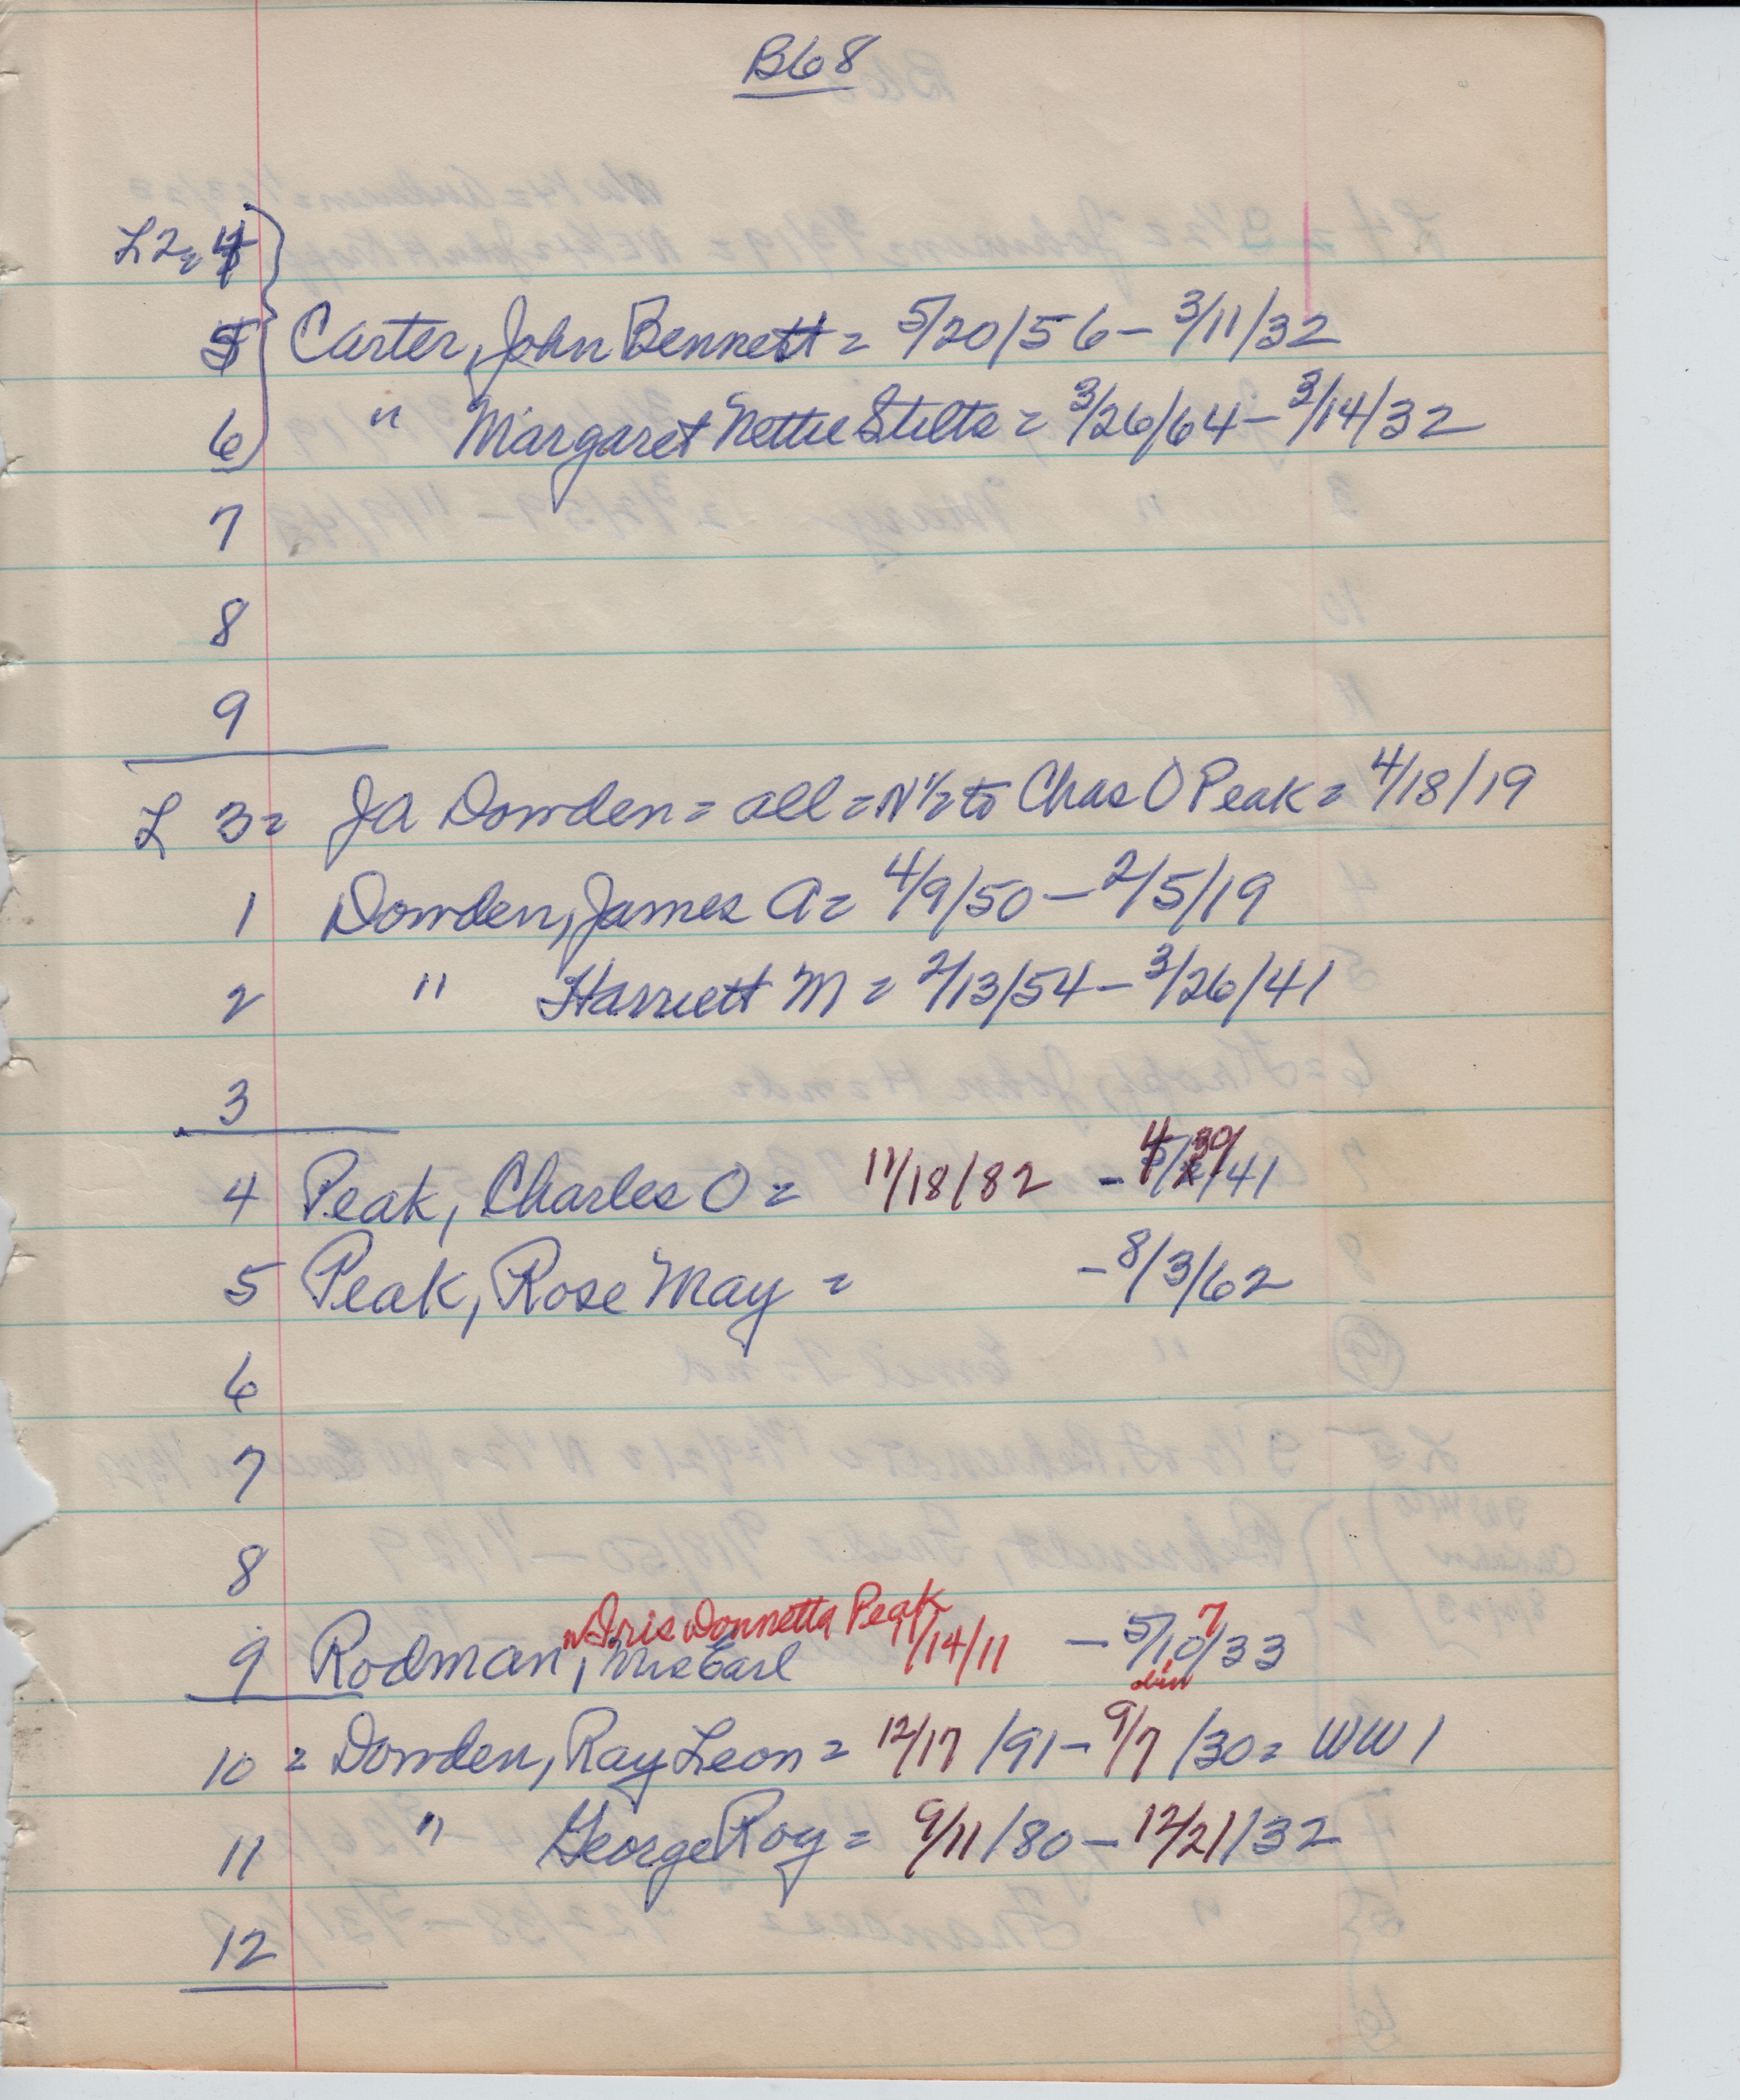 B68
L2, 4
5 Carter, John Bennett = 5/20/56 - 3/11/32
6 " Margaret Nettie Stilts = 3/26/64 - 3/14/32
7
8
9
L 3 = JA Dowden = all = N 1/2 to Chas O Peak = 4/18/19
1 Dowden, James A = 4/9/50 - 2/5/19
2 " Harriett M = 2/13/54 - 3/26/41
3
4 Peak, Charles O = 11/18/82 - 4/30/41
5 Peak, Rose May = - 8/3/62
6
7
8
Iris Donnetta Peak
9 Rodman, Mrs Earl 11/14/11 - 5/10/33
7
10 = Dowden, Ray Leon = 12/17/91 - 9/7/30 = WW1
11 " George Roy = 9/11/80 - 12/21/32
12